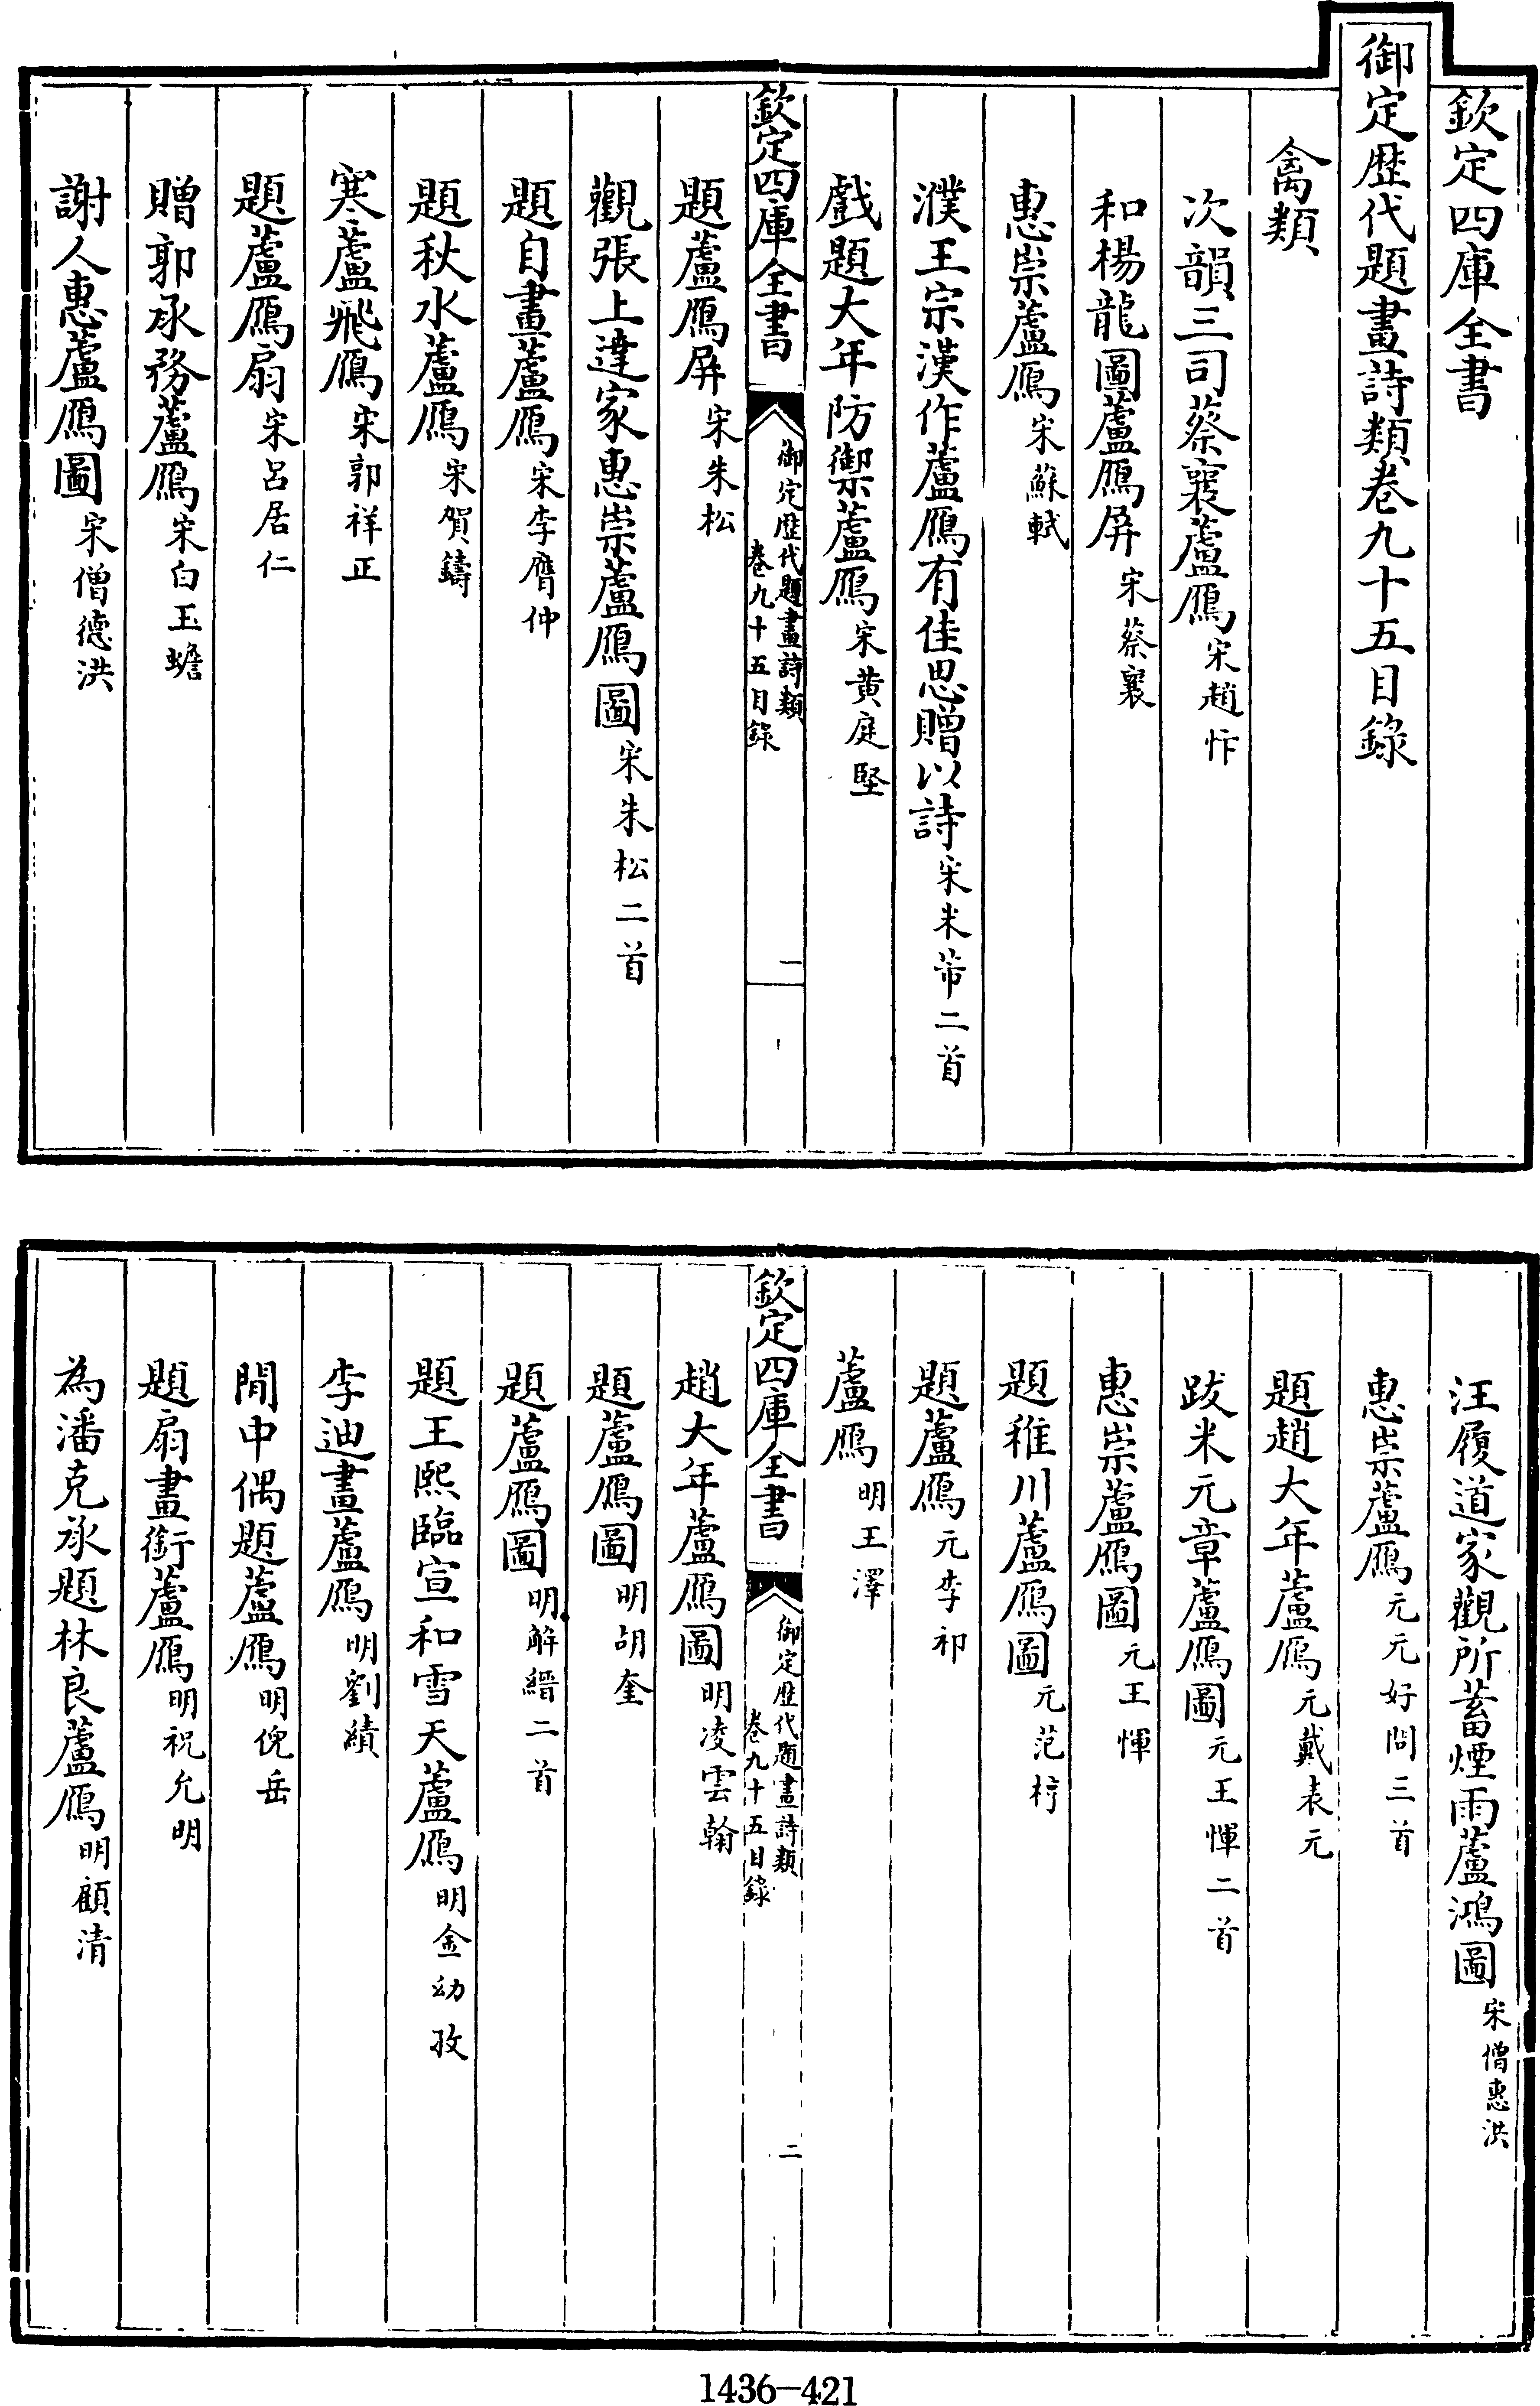 欽定四庫全書
御定歴代題畫詩類卷九十五目錄
禽類
次韻三司蔡襄蘆鴈宋趙忭
和楊龍圖蘆鴈屏宋蔡襄
惠崇蘆鴈宋蘇軾
濮王宗漢作蘆鴈有佳思贈以詩宋米芾二首
戲題大年防禦蘆鴈宋黄庭堅
欽定四庫全書
御定歴代題畫詩類
卷九十五目錄
一
題蘆鴈屏宋朱松
觀張上達家惠崇蘆鴈圖宋朱松二首
題自畫蘆鴈宋李膺仲
題秋水蘆鴈宋賀鑄
寒蘆飛鴈宋郭祥正
題蘆鴈扇宋呂居仁
贈郭承務蘆鴈宋白玉蟾
謝人惠蘆鴈圖宋僧德洪
汪履道家觀所蓄煙雨蘆鴻圖宋僧惠洪
惠崇蘆鴈元元好問三首
題趙大年蘆鴈元戴表元
跋米元章蘆鴈圖元王惲二首
惠崇蘆鴈圖元王惲
題稚川蘆鴈圖元范梈
題蘆鴈元李祁
蘆鴈明王澤
欽定四庫全書
御定歴代題畫詩類
卷九十五目錄
二
趙大年蘆鴈圖明凌雲翰
題蘆鴈圖明胡奎
題蘆鴈圖明解縉二首
題王熙臨宣和雪天蘆鴈明金幼孜
李迪畫蘆鴈明劉績
閒中偶題蘆鴈明倪岳
題扇畫銜蘆鴈明祝允明
為潘克承題林良蘆鴈明顧清
1436-421